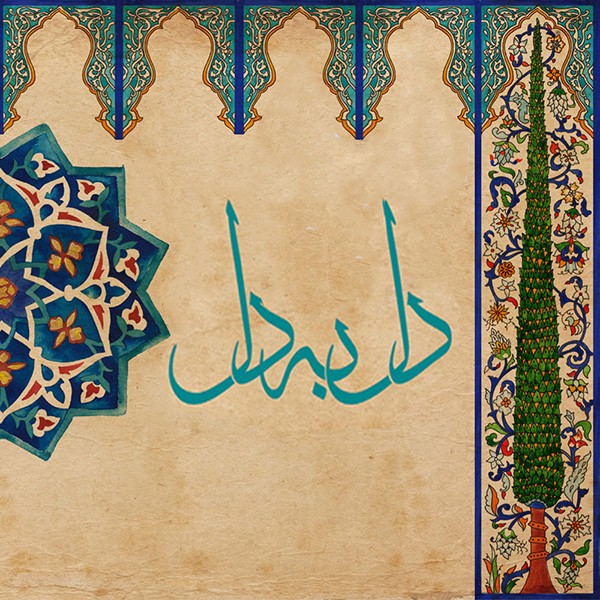 دل به دل